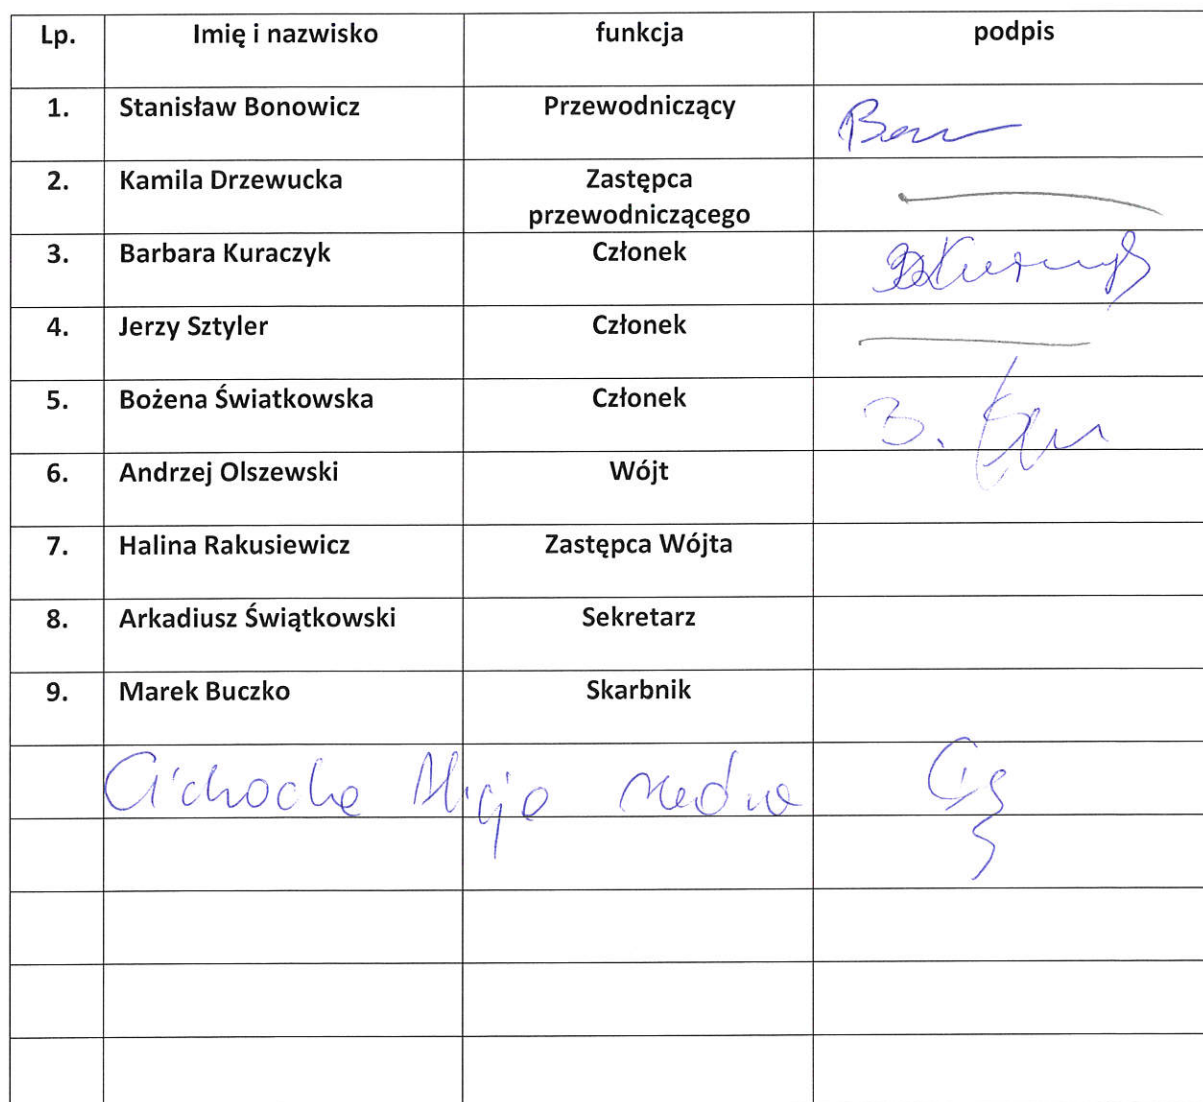 Lp. Imię i nazwisko funkcja podpis
1. Stanisław Bonowicz Przewodniczący
2. Kamila Drzewucka Zastępca
przewodniczącego
3. Barbara Kuraczyk Członek
4. Jerzy Sztyler Członek
5. Bożena Światkowska Członek B.
6. Andrzej Olszewski Wójt
7. Halina Rakusiewicz Zastępca Wójta
8. Arkadiusz Świątkowski Sekretarz
9. Marek Buczko Skarbnik
Cichocka Alicja radna